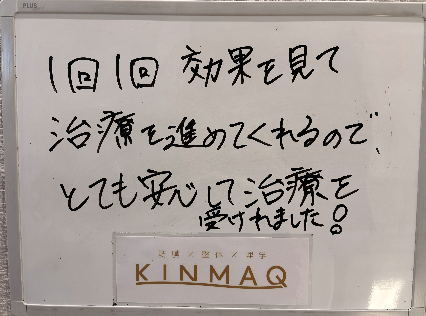 PLUS
1回1回 効果を見て
治療を進めてくれるので、
とても安心して治療を
受けれました!
KINMAQ